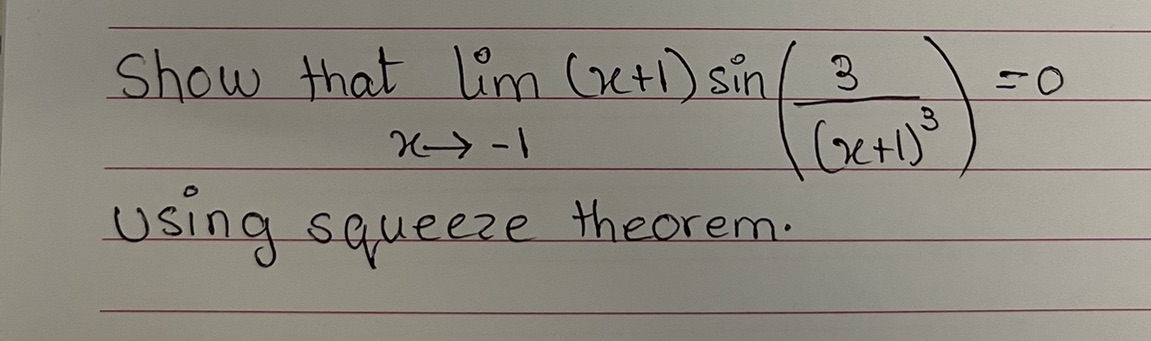 Show that lim (x+1) sin(3/(x+1)³) = 0
x→ -1
Using squeeze theorem.